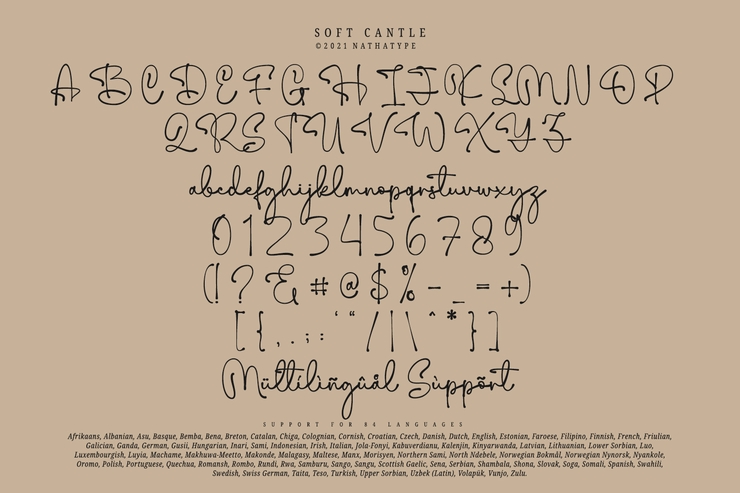 SOFT CANTLE
©2021 NATHATYPE
A B C D E F G H I J K L M N O P
Q R S T U V W X Y Z
abcdefghijklmnopqrstuvwxyz
0 1 2 3 4 5 6 7 8 9
( ! ? & # @ $ % - _ = + )
[ { , . ; : ‘ “ / | \ ^ * } ]
Mültílìñgûål Sùppõrt
SUPPORT FOR 84 LANGUAGES
Afrikaans, Albanian, Asu, Basque, Bemba, Bena, Breton, Catalan, Chiga, Colognian, Cornish, Croatian, Czech, Danish, Dutch, English, Estonian, Faroese, Filipino, Finnish, French, Friulian,
Galician, Ganda, German, Gusii, Hungarian, Inari, Sami, Indonesian, Irish, Italian, Jola-Fonyi, Kabuverdianu, Kalenjin, Kinyarwanda, Latvian, Lithuanian, Lower Sorbian, Luo,
Luxembourgish, Luyia, Machame, Makhuwa-Meetto, Makonde, Malagasy, Maltese, Manx, Morisyen, Northern Sami, North Ndebele, Norwegian Bokmål, Norwegian Nynorsk, Nyankole,
Oromo, Polish, Portuguese, Quechua, Romansh, Rombo, Rundi, Rwa, Samburu, Sango, Sangu, Scottish Gaelic, Sena, Serbian, Shambala, Shona, Slovak, Soga, Somali, Spanish, Swahili,
Swedish, Swiss German, Taita, Teso, Turkish, Upper Sorbian, Uzbek (Latin), Volapük, Vunjo, Zulu.